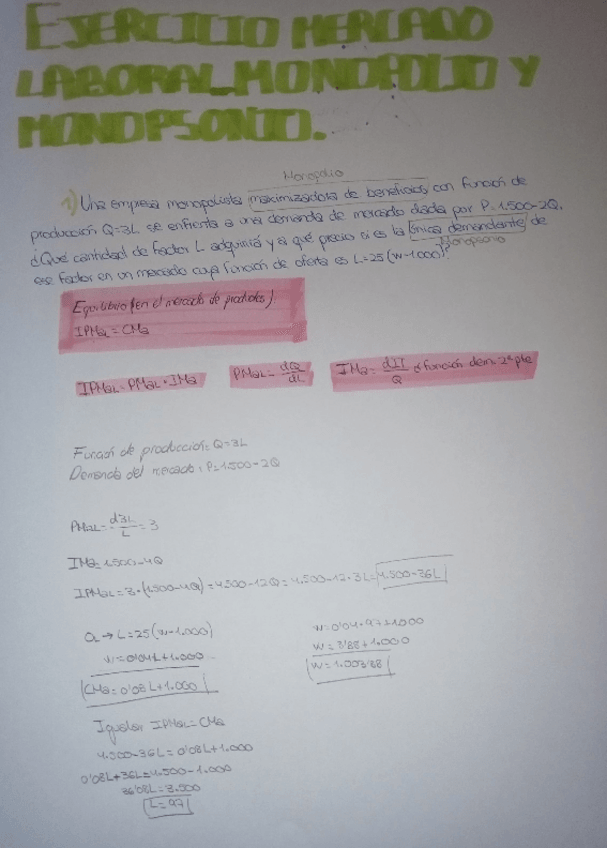 EJERCICIO MERCADO
LABORAL_MONOPOLIO Y
MONOPSONIO.
Monopolio
1) Una empresa monopolista maximizadora de beneficios con función de
producción Q=3L se enfrenta a una demanda de mercado dada por P=1.500-2Q.
¿Qué cantidad de factor L adquirirá y a qué precio si es la única demandante de
Monopsonio
ese factor en un mercado cuya función de oferta es L=25(w-1.000)?
Equilibrio (en el mercado de productos)
IPMaL = CMa
IPMaL = PMaL · IMa
PMaL = dQ/dL
IMa = dIT/Q función dem. 2ª pte
Función de producción: Q=3L
Demanda del mercado: P=1.500-2Q
PMaL = d3L/L = 3
IMa = 1.500-4Q
IPMaL = 3·(1.500-4Q) = 4.500-12Q = 4.500-12·3L = 4.500-36L
OL → L=25(w-1.000)
w=0'04L+1.000
CMa = 0'08L+1.000
w=0'04·97+1.000
w=3'88+1.000
w=1.003'88
Igualar IPMaL = CMa
4.500-36L = 0'08L+1.000
0'08L+36L = 4.500-1.000
36'08L = 3.500
L=97